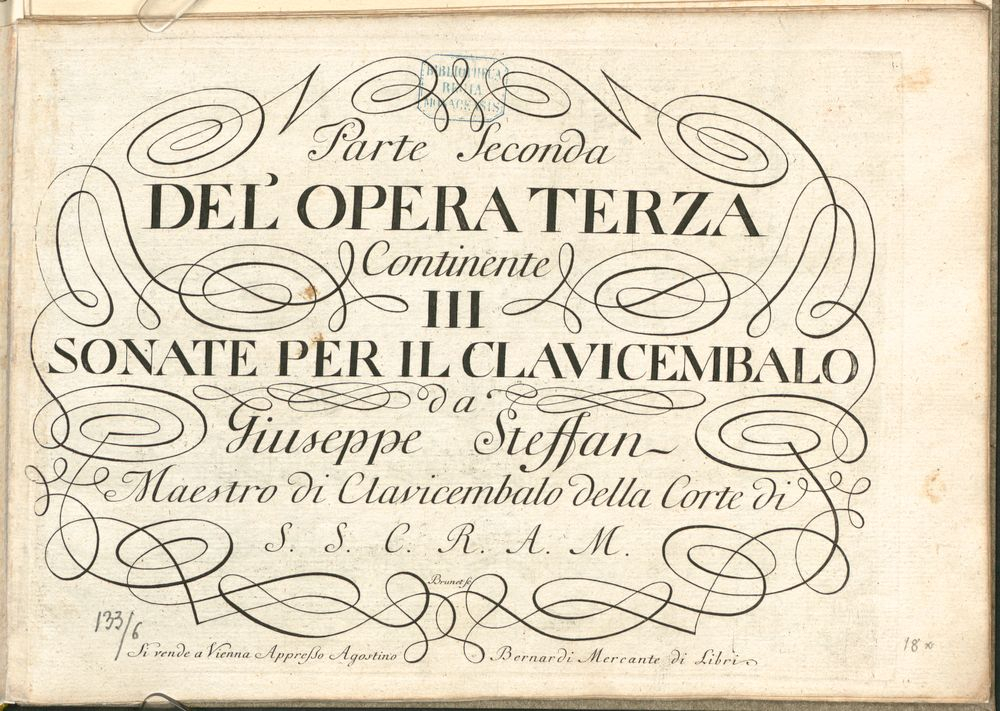 BIBLIOTHECA
REGIA
MONACENSIS
Parte Seconda
DEL' OPERA TERZA
Continente
III
SONATE PER IL CLAVICEMBALO
da
Giuseppe Steffan
Maestro di Clavicembalo della Corte di
S. S. C. R. A. M.
Brunet sc
133/6
Si vende a Vienna Appreßo Agostino Bernardi Mercante di Libri
18